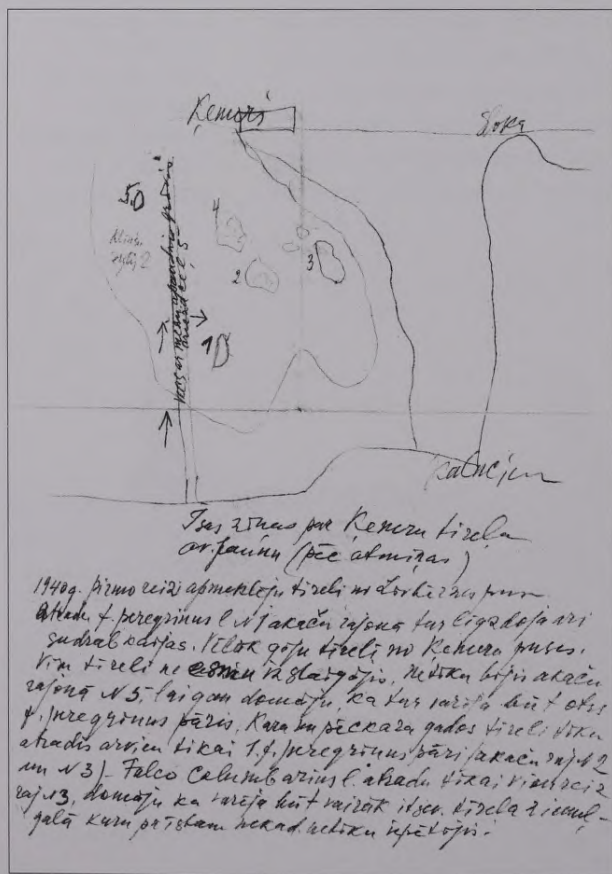 Ķemeri
Sloka
5.
4
2
3
1
Kalnciem
Īsas ziņas par Ķemeru tīreļa
(pēc atmiņas)
1940g. pirmo reizi apmeklēju tīreli no puses
atradu f. peregrinus L N1 akaču rajonā tur ligzdoja arī
sudrabkaijas. Vēlāk gāju tīrelī no Ķemeru puses.
Visu tīreli ne izstaigājis, netiku bijis akaču
rajonā N5, laigan domāju, ka tur varēja būt otrs
f. peregrinus pāris. Kara un pēckara gados tīrelī tiku
atradis arvien tikai 1 f. peregrinus pāri (akaču raj. N2
un N3). Falco Columbarius L. atradu tikai vienreiz
raj. N3, domāju ka varēja būt vairāk tīreļa ziemeļ-
galā kuru nekad netiku izpētījis.